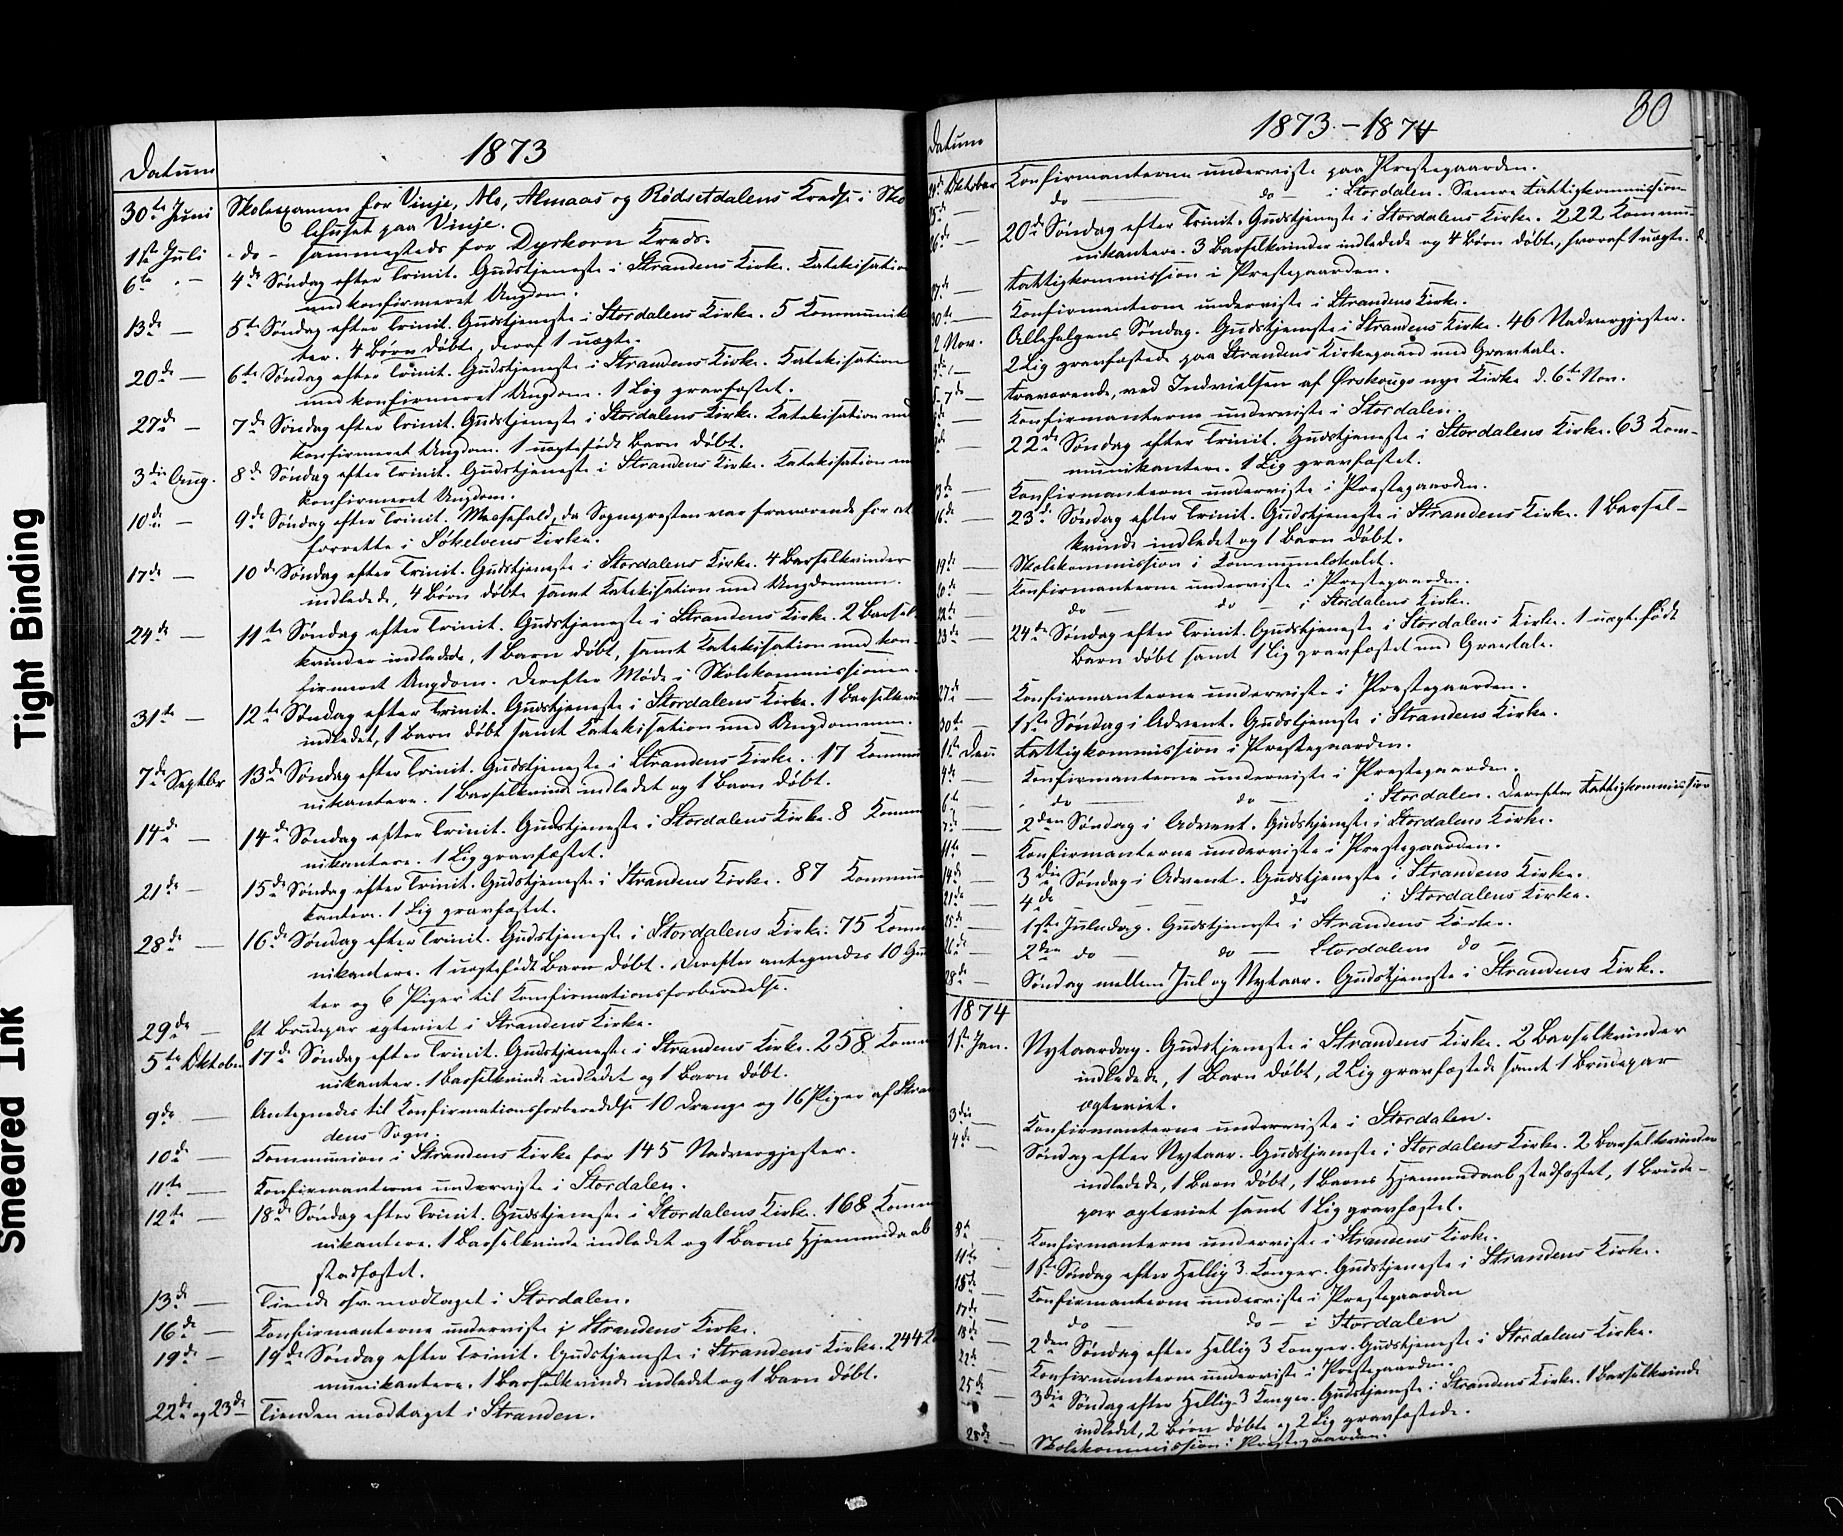 Tight Binding
Smeared Ink
1873
Datum
30te Juni Skoleexamen for Vinje, Mo, Almaas og Rødsetdalens Kreds i Sko
lehuset paa Vinje.
1ste Juli - do - sammesteds for Dyrkorn Kreds.
6te - 4de Søndag efter Trinit. Gudstjeneste i Strandens Kirke. Katekisation
med konfirmeret Ungdom.
13de - 5te Søndag efter Trinit. Gudstjeneste i Stordalens Kirke. 5 Kommunik
ter. 4 Børn døbte, deraf 1 uægte.
20de - 6te Søndag efter Trinit. Gudstjeneste i Strandens Kirke. Katekisation
med konfirmeret Ungdom. 1 Lig gravfæstet.
27de - 7de Søndag efter Trinit. Gudstjeneste i Stordalens Kirke. Katekisation med
konfirmeret Ungdom. 1 uægtefødt Barn døbt.
3die Aug. 8de Søndag efter Trinit. Gudstjeneste i Strandens Kirke. Katekisation m
konfirmeret Ungdom.
10de - 9de Søndag efter Trinit. Messefald, da Sognepresten var fraværende for at
forrette i Søkelvens Kirke.
17de - 10de Søndag efter Trinit. Gudstjeneste i Stordalens Kirke. 4 Barselkvinder
indledede, 4 Børn døbte samt Katekisation med Ungdommen.
24de - 11te Søndag efter Trinit. Gudstjeneste i Strandens Kirke. 2 Barsel-
kvinder indledede, 1 Barn døbt, samt Katekisation med kon-
firmeret Ungdom. Derefter Møde i Skolekommissionen.
31te - 12te Søndag efter Trinit. Gudstjeneste i Stordalens Kirke. 1 Barselkvin
indledet, 1 Barn døbt samt Katekisation med Ungdommen.
7de Septbr 13de Søndag efter Trinit. Gudstjeneste i Strandens Kirke. 17 Kommu
nikantere. 1 Barselkvinde indledet og 1 Barn døbt.
14de - 14de Søndag efter Trinit. Gudstjeneste i Stordalens Kirke. 8 Kommu
nikantere. 1 Lig gravfæstet.
21de - 15de Søndag efter Trinit. Gudstjeneste i Strandens Kirke. 87 Kommuni
kantere. 1 Lig gravfæstet.
28de - 16de Søndag efter Trinit. Gudstjeneste i Stordalens Kirke. 75 Kommu
nikantere. 1 uægtefødt Barn døbt. Derefter antegnedes 10 Gut
ter og 6 Piger til Konfirmationsforberedelse.
29de - Et Brudepar ægteviet i Strandens Kirke.
5te Oktober 17de Søndag efter Trinit. Gudstjeneste i Strandens Kirke. 258 Kommu
nikanter. 1 Barselkvinde indledet og 1 Barn døbt.
9de - Antegnedes til Konfirmationsforberedelse 10 Drenge og 16 Piger af Stran
dens Sogn.
10de - Kommunion i Strandens Kirke for 145 Nadvergjester.
11te - Konfirmanterne underviste i Stordalen.
12te - 18de Søndag efter Trinit. Gudstjeneste i Stordalens Kirke. 168 Kommu
nikantere. 1 Barselkvinde indledet og 1 Barns Hjemmedaab
stadfæstet.
13de - Tiende osv. modtaget i Stordalen.
16de - Konfirmanterne underviste i Strandens Kirke.
19de - 19de Søndag efter Trinit. Gudstjeneste i Strandens Kirke. 244 Ko
munikantere. 1 Barselkvinde indledet og 1 Barn døbt.
22de og 23de - Tienden modtaget i Stranden.
80
1873 - 1874
Datum
Oktober Konfirmanterne underviste paa Prestegaarden.
25de - do - do - i Stordalen. Senere Fattigkommission
26de - 20de Søndag efter Trinit. Gudstjeneste i Stordalens Kirke. 222 Kommu-
nikantere. 3 Barselkvinder indledede og 4 Børn døbte, hvoraf 1 uægte.
27de - Fattigkommission i Prestegaarden.
30te - Konfirmanterne underviste i Strandens Kirke.
2 Nov. Allehelgens Søndag. Gudstjeneste i Strandens Kirke. 46 Nadvergjester.
3de - 2 Lig gravfæstede paa Strandens Kirkegaard med Gravtale.
5-7de - Fraværende, ved Indvielsen af Ørskougs nye Kirke d. 6te Nov.
8de - Konfirmanterne underviste i Stordalen.
9de - 22de Søndag efter Trinit. Gudstjeneste i Stordalens Kirke. 63 Kom-
munikantere. 1 Lig gravfæstet.
13de - Konfirmanterne underviste i Prestegaarden.
16de - 23de Søndag efter Trinit. Gudstjeneste i Strandens Kirke. 1 Barsel-
kvinde indledet og 1 Barn døbt.
19de - Skolekommission i Kommunelokalet.
20de - Konfirmanterne underviste i Prestegaarden.
22de - do - do - i Stordalens Kirke.
23de - 24de Søndag efter Trinit. Gudstjeneste i Stordalens Kirke. 1 uægtefødt
Barn døbt samt 1 Lig gravfæstet med Gravtale.
27de - Konfirmanterne underviste i Prestegaarden.
30te - 1ste Søndag i Advent. Gudstjeneste i Strandens Kirke.
1ste Dec. Fattigkommission i Prestegaarden.
4de - Konfirmanterne underviste i Prestegaarden.
6te - do - do - i Stordalen. Derefter Fattigkommission
7de - 2den Søndag i Advent. Gudstjeneste i Stordalens Kirke.
11te - Konfirmanterne underviste i Prestegaarden.
14de - 3die Søndag i Advent. Gudstjeneste i Strandens Kirke.
21de - 4de - - do i Stordalens Kirke.
25de - 1ste Juledag. Gudstjeneste i Strandens Kirke.
26de - 2den do - do - Stordalens do -
28de - Søndag mellem Jul og Nytaar. Gudstjeneste i Strandens Kirke.
1874
1ste Jan. Nytaarsdag. Gudstjeneste i Strandens Kirke. 2 Barselkvinder
indledede, 1 Barn døbt, 2 Lig gravfæstede samt 1 Brudepar
ægteviet.
3die - Konfirmanterne underviste i Stordalen.
4de - Søndag efter Nytaar. Gudstjeneste i Stordalens Kirke. 2 Barselkvinder
indledede, 1 Barn døbt, 1 Barns Hjemmedaab stadfæstet, 1 Brude-
par ægteviet samt 1 Lig gravfæstet.
8de - Konfirmanterne underviste i Strandens Kirke.
11te - 1ste Søndag efter Hellig 3 Konger. Gudstjeneste i Strandens Kirke.
15de - Konfirmanterne underviste i Prestegaarden
17de - do - do - i Stordalen
18de - 2den Søndag efter Hellig 3 Konger. Gudstjeneste i Stordalens Kirke.
22de - Konfirmanterne underviste i Prestegaarden.
25de - 3die Søndag efter Hellig 3 Konger. Gudstjeneste i Strandens Kirke. 1 Barselkvinde
indledet, 2 Børn døbte og 2 Lig gravfæstede.
28de - Skolekommission i Prestegaarden.